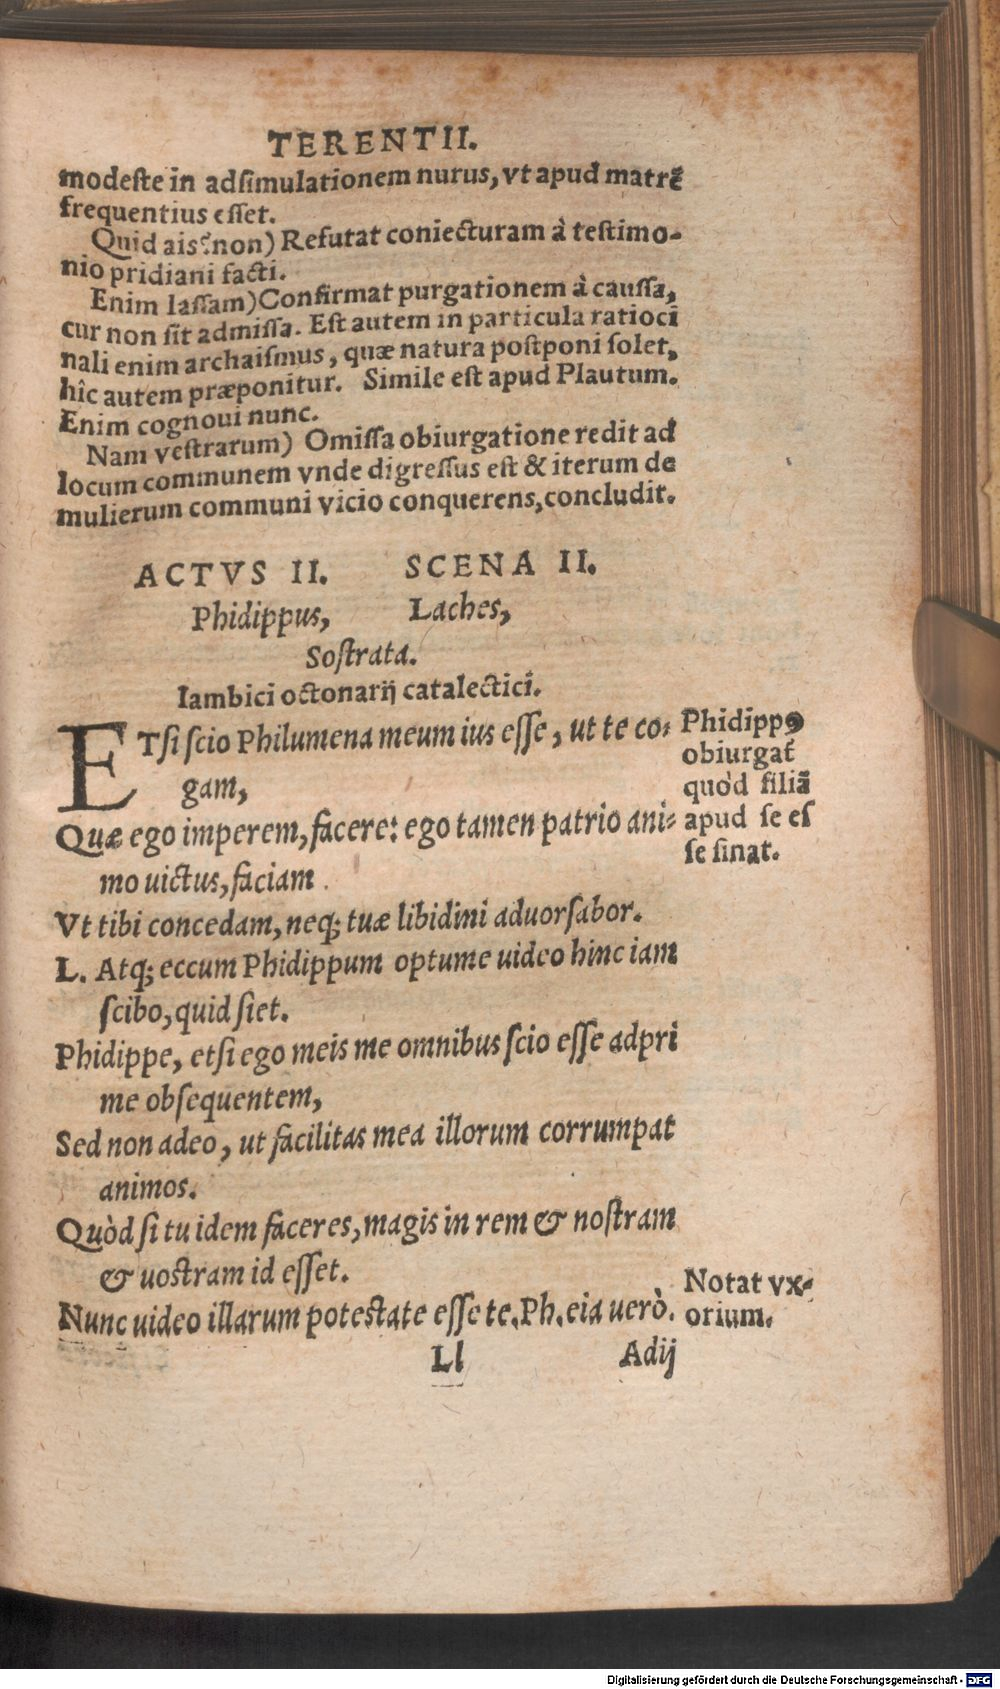 TERENTII.
modeste in adsimulationem nurus, vt apud matrẽ
frequentius esset.
Quid ais? non) Refutat coniecturam à testimo-
nio pridiani facti.
Enim lassam) Confirmat purgationem à caussa,
cur non sit admissa. Est autem in particula ratioci
nali enim archaismus, quæ natura postponi solet,
hîc autem præponitur. Simile est apud Plautum.
Enim cognoui nunc.
Nam vestrarum) Omissa obiurgatione redit ad
locum communem vnde digressus est & iterum de
mulierum communi vicio conquerens, concludit.
ACTVS II. SCENA II.
Phidippus, Laches,
Sostrata.
Iambici octonarij catalectici.
ETsi scio Philumena meum ius esse, ut te co-
gam,
Quæ ego imperem, facere: ego tamen patrio ani-
mo uictus, faciam.
Vt tibi concedam, neq; tuæ libidini aduorsabor.
L. Atq; eccum Phidippum optume uideo hinc iam
scibo, quid siet.
Phidippe, etsi ego meis me omnibus scio esse adpri
me obsequentem,
Sed non adeo, ut facilitas mea illorum corrumpat
animos.
Quòd si tu idem faceres, magis in rem & nostram
& uostram id esset.
Nunc uideo illarum potestate esse te. Ph. eia uerò.
Ll Adij
Phidippꝯ
obiurgat
quòd filiã
apud se es
se sinat.
Notat vx-
orium.
Digitalisierung gefördert durch die Deutsche Forschungsgemeinschaft - DFG